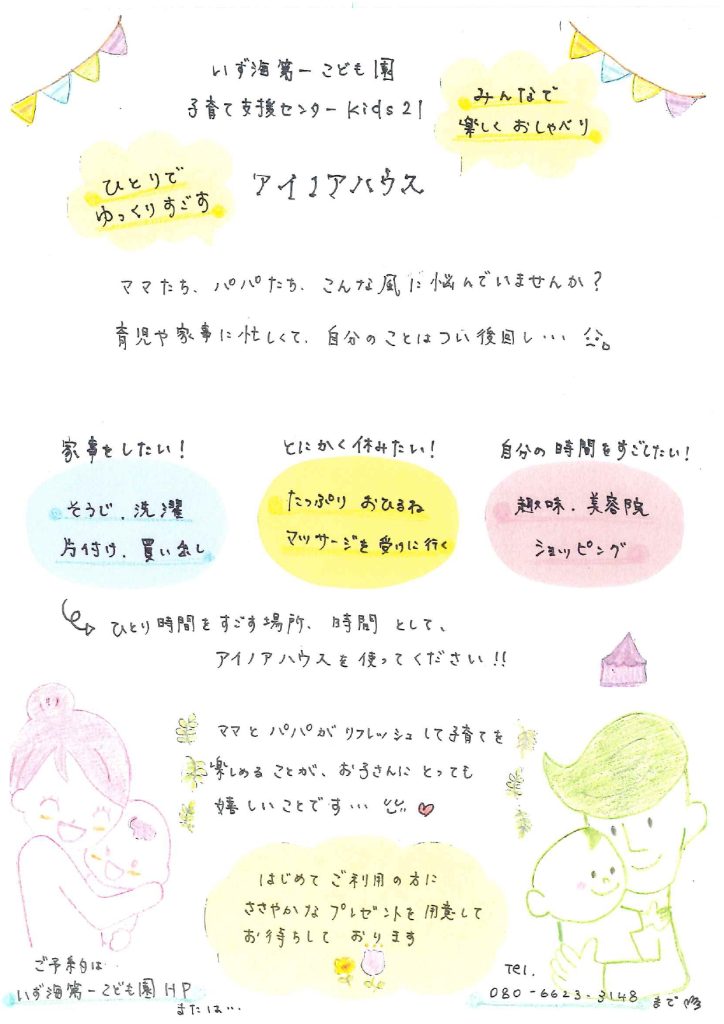 いず海第一こども園
子育て支援センターkids21
みんなで
楽しくおしゃべり
ひとりで
ゆっくりすごす
アイノアハウス
ママたち、パパたち、こんな風に悩んでいませんか？
育児や家事に忙しくて、自分のことはつい後回し…
家事をしたい！
そうじ、洗濯
片付け、買い出し
とにかく休みたい！
たっぷり おひるね
マッサージを受けに行く
自分の時間をすごしたい！
趣味、美容院
ショッピング
ひとり時間をすごす場所、時間として、
アイノアハウスを使ってください!!
ママとパパがリフレッシュして子育てを
楽しめることが、お子さんにとっても
嬉しいことです…
はじめてご利用の方に
ささやかなプレゼントを用意して
お待ちしております
ご予約は…
いず海第一こども園HP
または…
Tel.
080-6623-3148まで